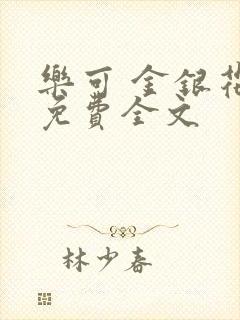 樂可 金銀花
免費全文
林少春